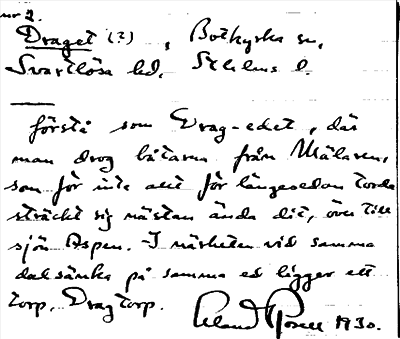 nr 2.
Draget (?), Botkyrka sn,
Svartlösa hd, Sthlms l.
förstå som Drag-edet, där
man drog båtarna från Mälaren,
som för inte allt för längesedan torde
sträckt sig nästan ända dit, över till
sjön Aspen. I närheten vid samma
dalsänka på samma ed ligger ett
torp, Dragtorp.
1930.